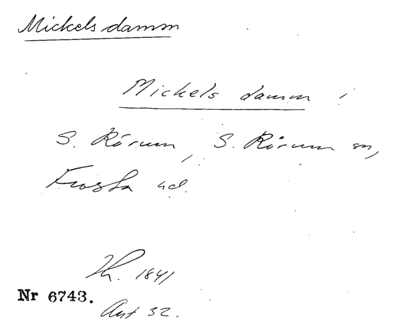 Mickels damm
Mickels damm
S. Rörum, S. Rörum sn,
Frosta hd.
1841
Nr 6743.
Avt 32.